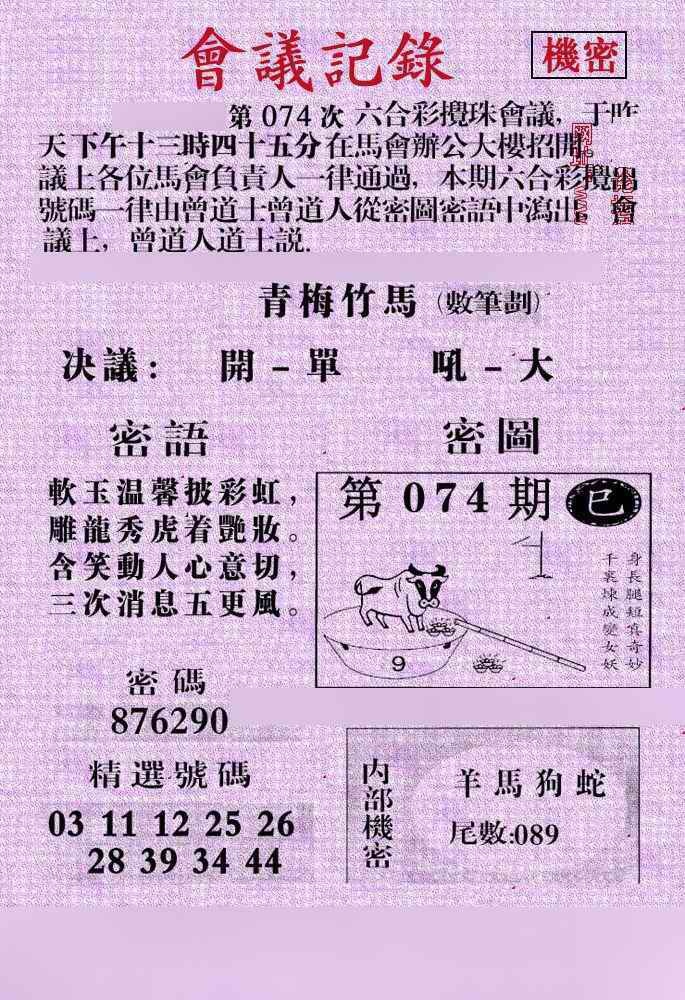 會議記錄
機密
第074次 六合彩攪珠會議，于昨
天下午十三時四十五分在馬會辦公大樓招開。
議上各位馬會負責人一律通過，本期六合彩攪出
號碼一律由曾道士曾道人從密圖密語中瀉出，會
議上，曾道人道士説.
青梅竹馬（數筆劃）
決議： 開－單 吼－大
密語
軟玉温馨披彩虹，
雕龍秀虎着艷妝。
含笑動人心意切，
三次消息五更風。
密圖
第074期 巳
身長腿短真奇妙
千裏煉成變女妖
9
密碼
876290
精選號碼
03 11 12 25 26
28 39 34 44
内部機密
羊馬狗蛇
尾數:089